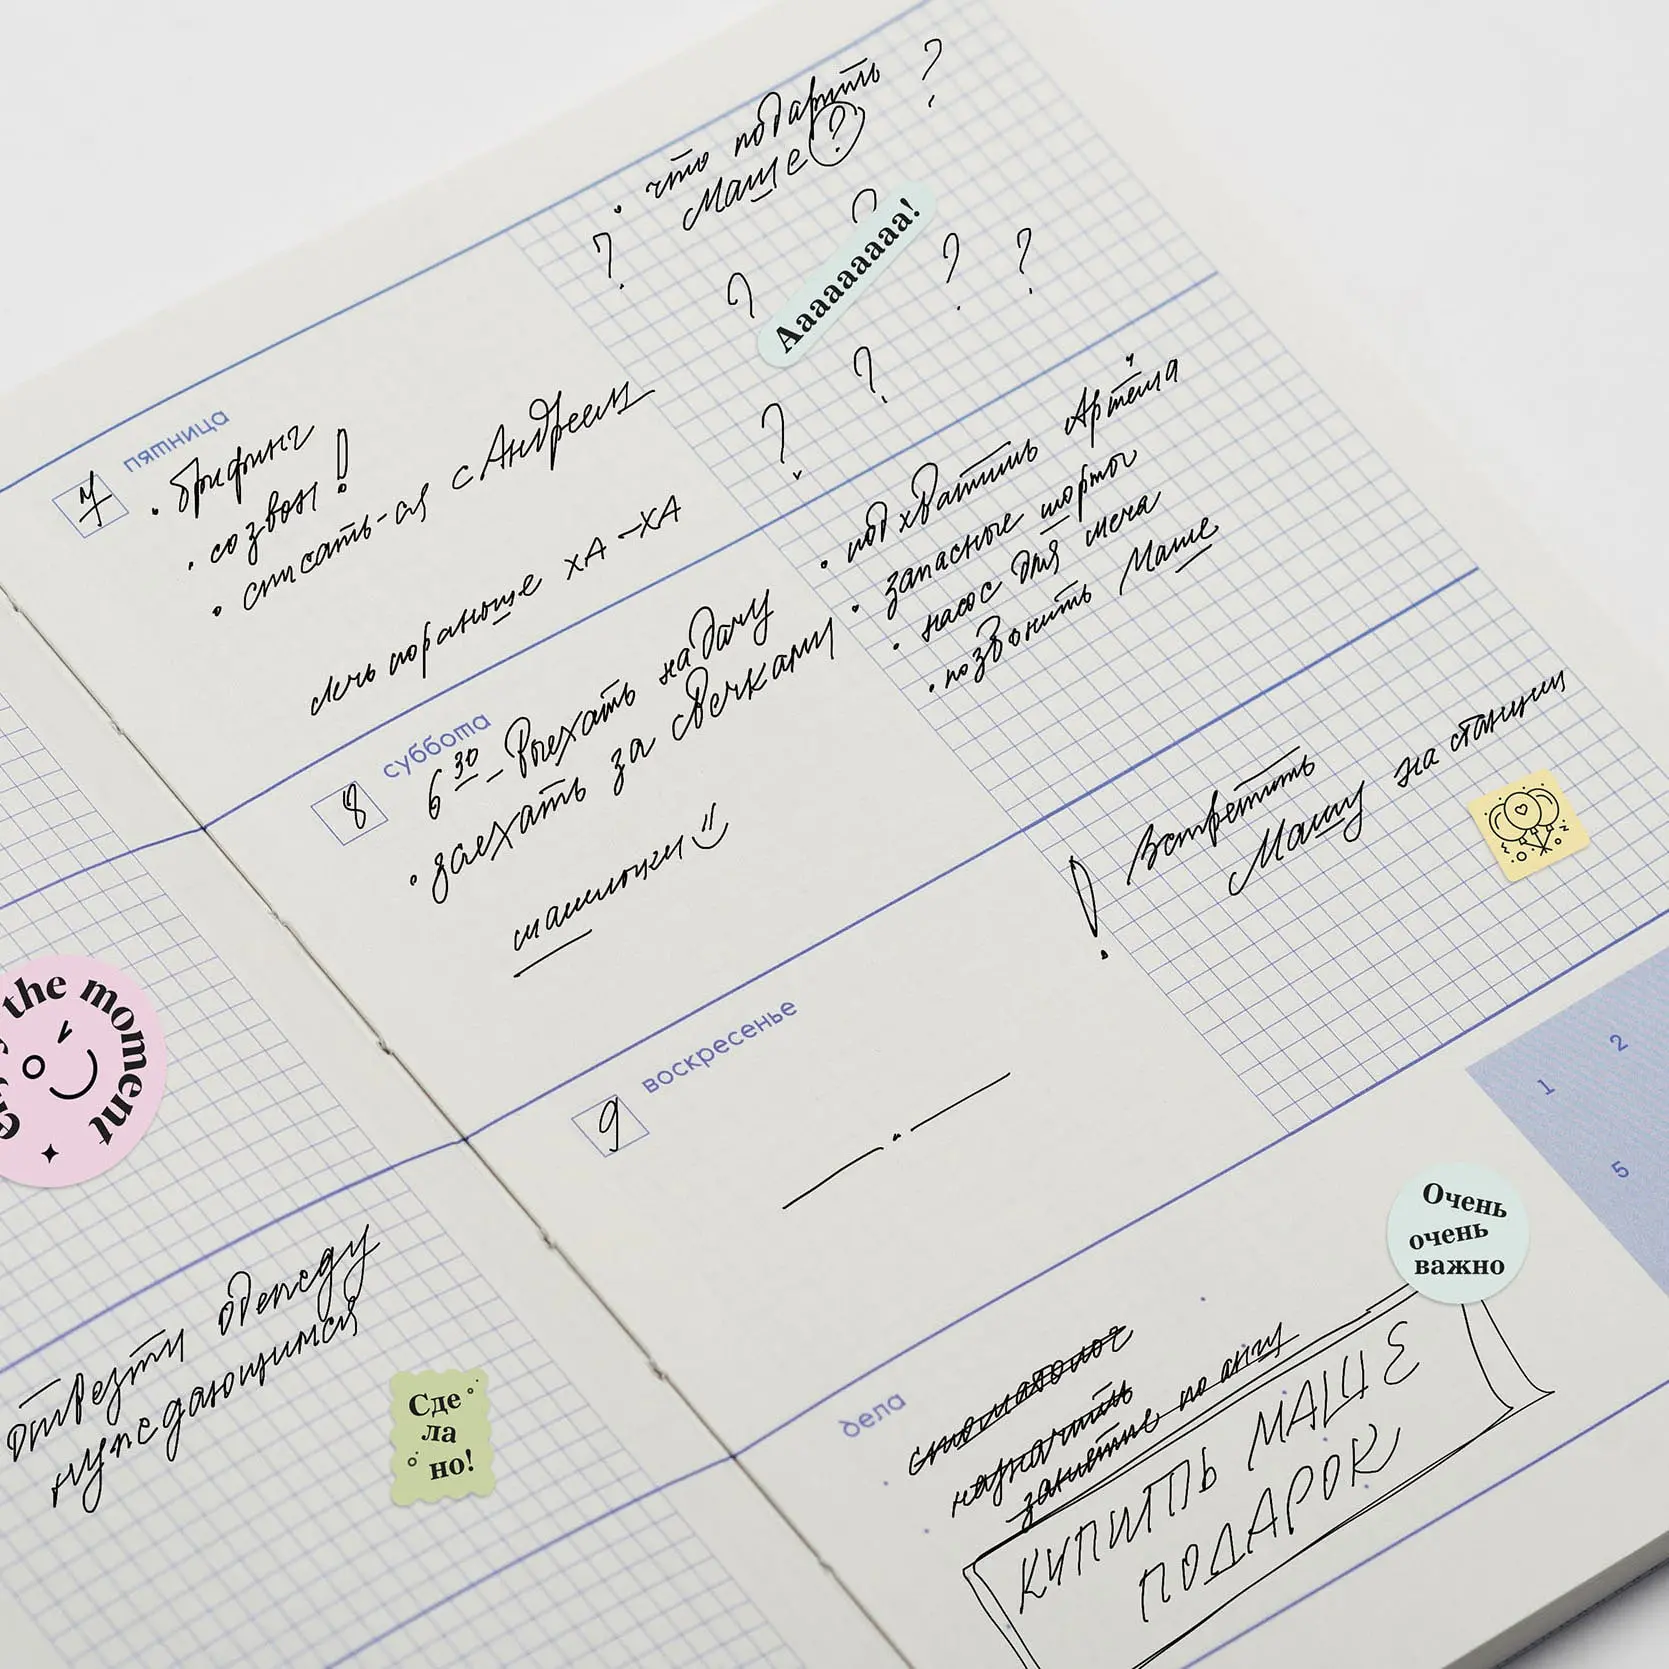 the moment
отвезти одежду
нуждающимся
Сде
ла
но!
пятница
7
• брифинг
• созвон!
• списать-ся с Андреем
лечь пораньше ХА-ХА
• что подарить ?
Маше ?
? ? ? ? ?
Аааааааааа!
? ?
суббота
8
6 30 – Выехать на дачу
• заехать за свечками
машлочки
• подхватить Артёма
• запасные шорты
• насос для мяча
• позвонить Маше
воскресенье
9
! Встретить
Машу на станции
дела
стоматолог
назначить
занятие по англ
КУПИТЬ МАШЕ
ПОДАРОК
Очень
очень
важно
1 2
5